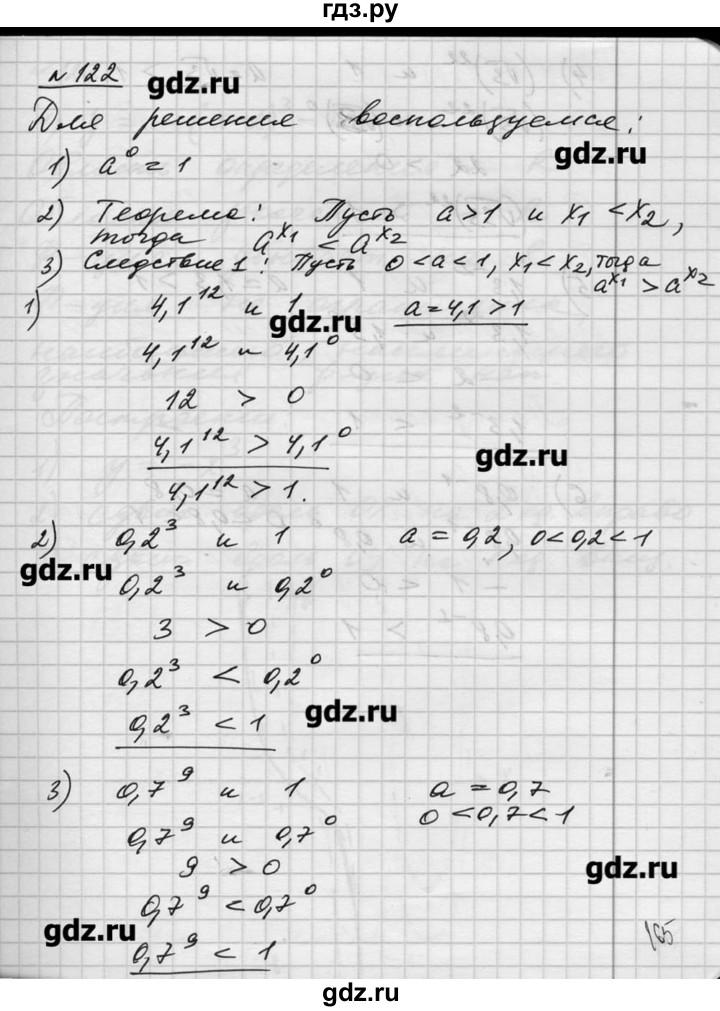 гдз.ру
№ 122
gdz.ru
Для решения воспользуемся:
gdz.ru
1) a⁰ = 1
2) Теорема: Пусть a>1 и x₁ < x₂,
тогда a^x₁ < a^x₂
3) Следствие 1: Пусть 0<a<1, x₁<x₂, тогда
a^x₁ > a^x₂
1) 4,1¹² и 1 a = 4,1 > 1
gdz.ru
4,1¹² и 4,1⁰
12 > 0
4,1¹² > 4,1⁰
gdz.ru
4,1¹² > 1.
2) 0,2³ и 1 a = 0,2, 0<0,2<1
gdz.ru
0,2³ и 0,2⁰
3 > 0
0,2³ < 0,2⁰
0,2³ < 1
gdz.ru
3) 0,7⁹ и 1 a = 0,7
0<0,7<1
0,7⁹ и 0,7⁰
9 > 0
gdz.ru
0,7⁹ < 0,7⁰
gdz.ru
0,7⁹ < 1
165
gdz.ru